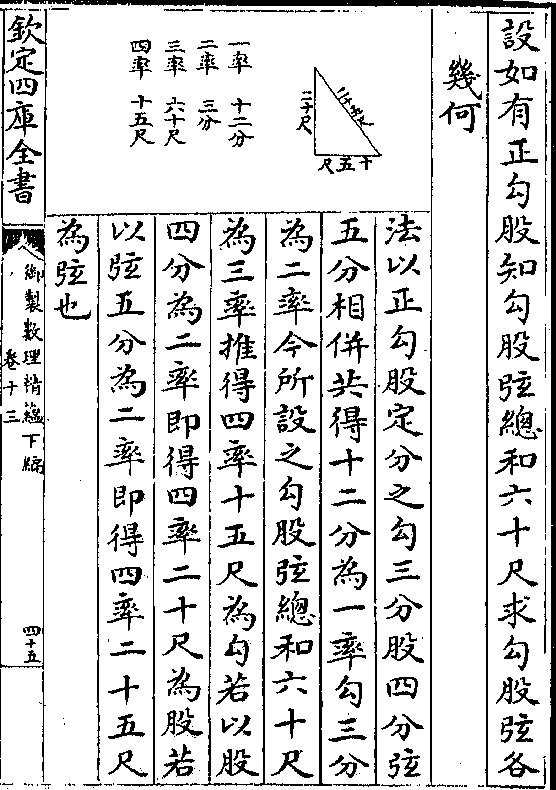 設如有正勾股知勾股弦總和六十尺求勾股弦各
幾何
十五尺
二十尺
二十五尺
一率　十二分
二率　三分
三率　六十尺
四率　十五尺
法以正勾股定分之勾三分股四分弦
五分相併共得十二分為一率勾三分
為二率今所設之勾股弦總和六十尺
為三率推得四率十五尺為勾若以股
四分為二率即得四率二十尺為股若
以弦五分為二率即得四率二十五尺
為弦也
欽定四庫全書
御製數理精藴下編
卷十三
四十五